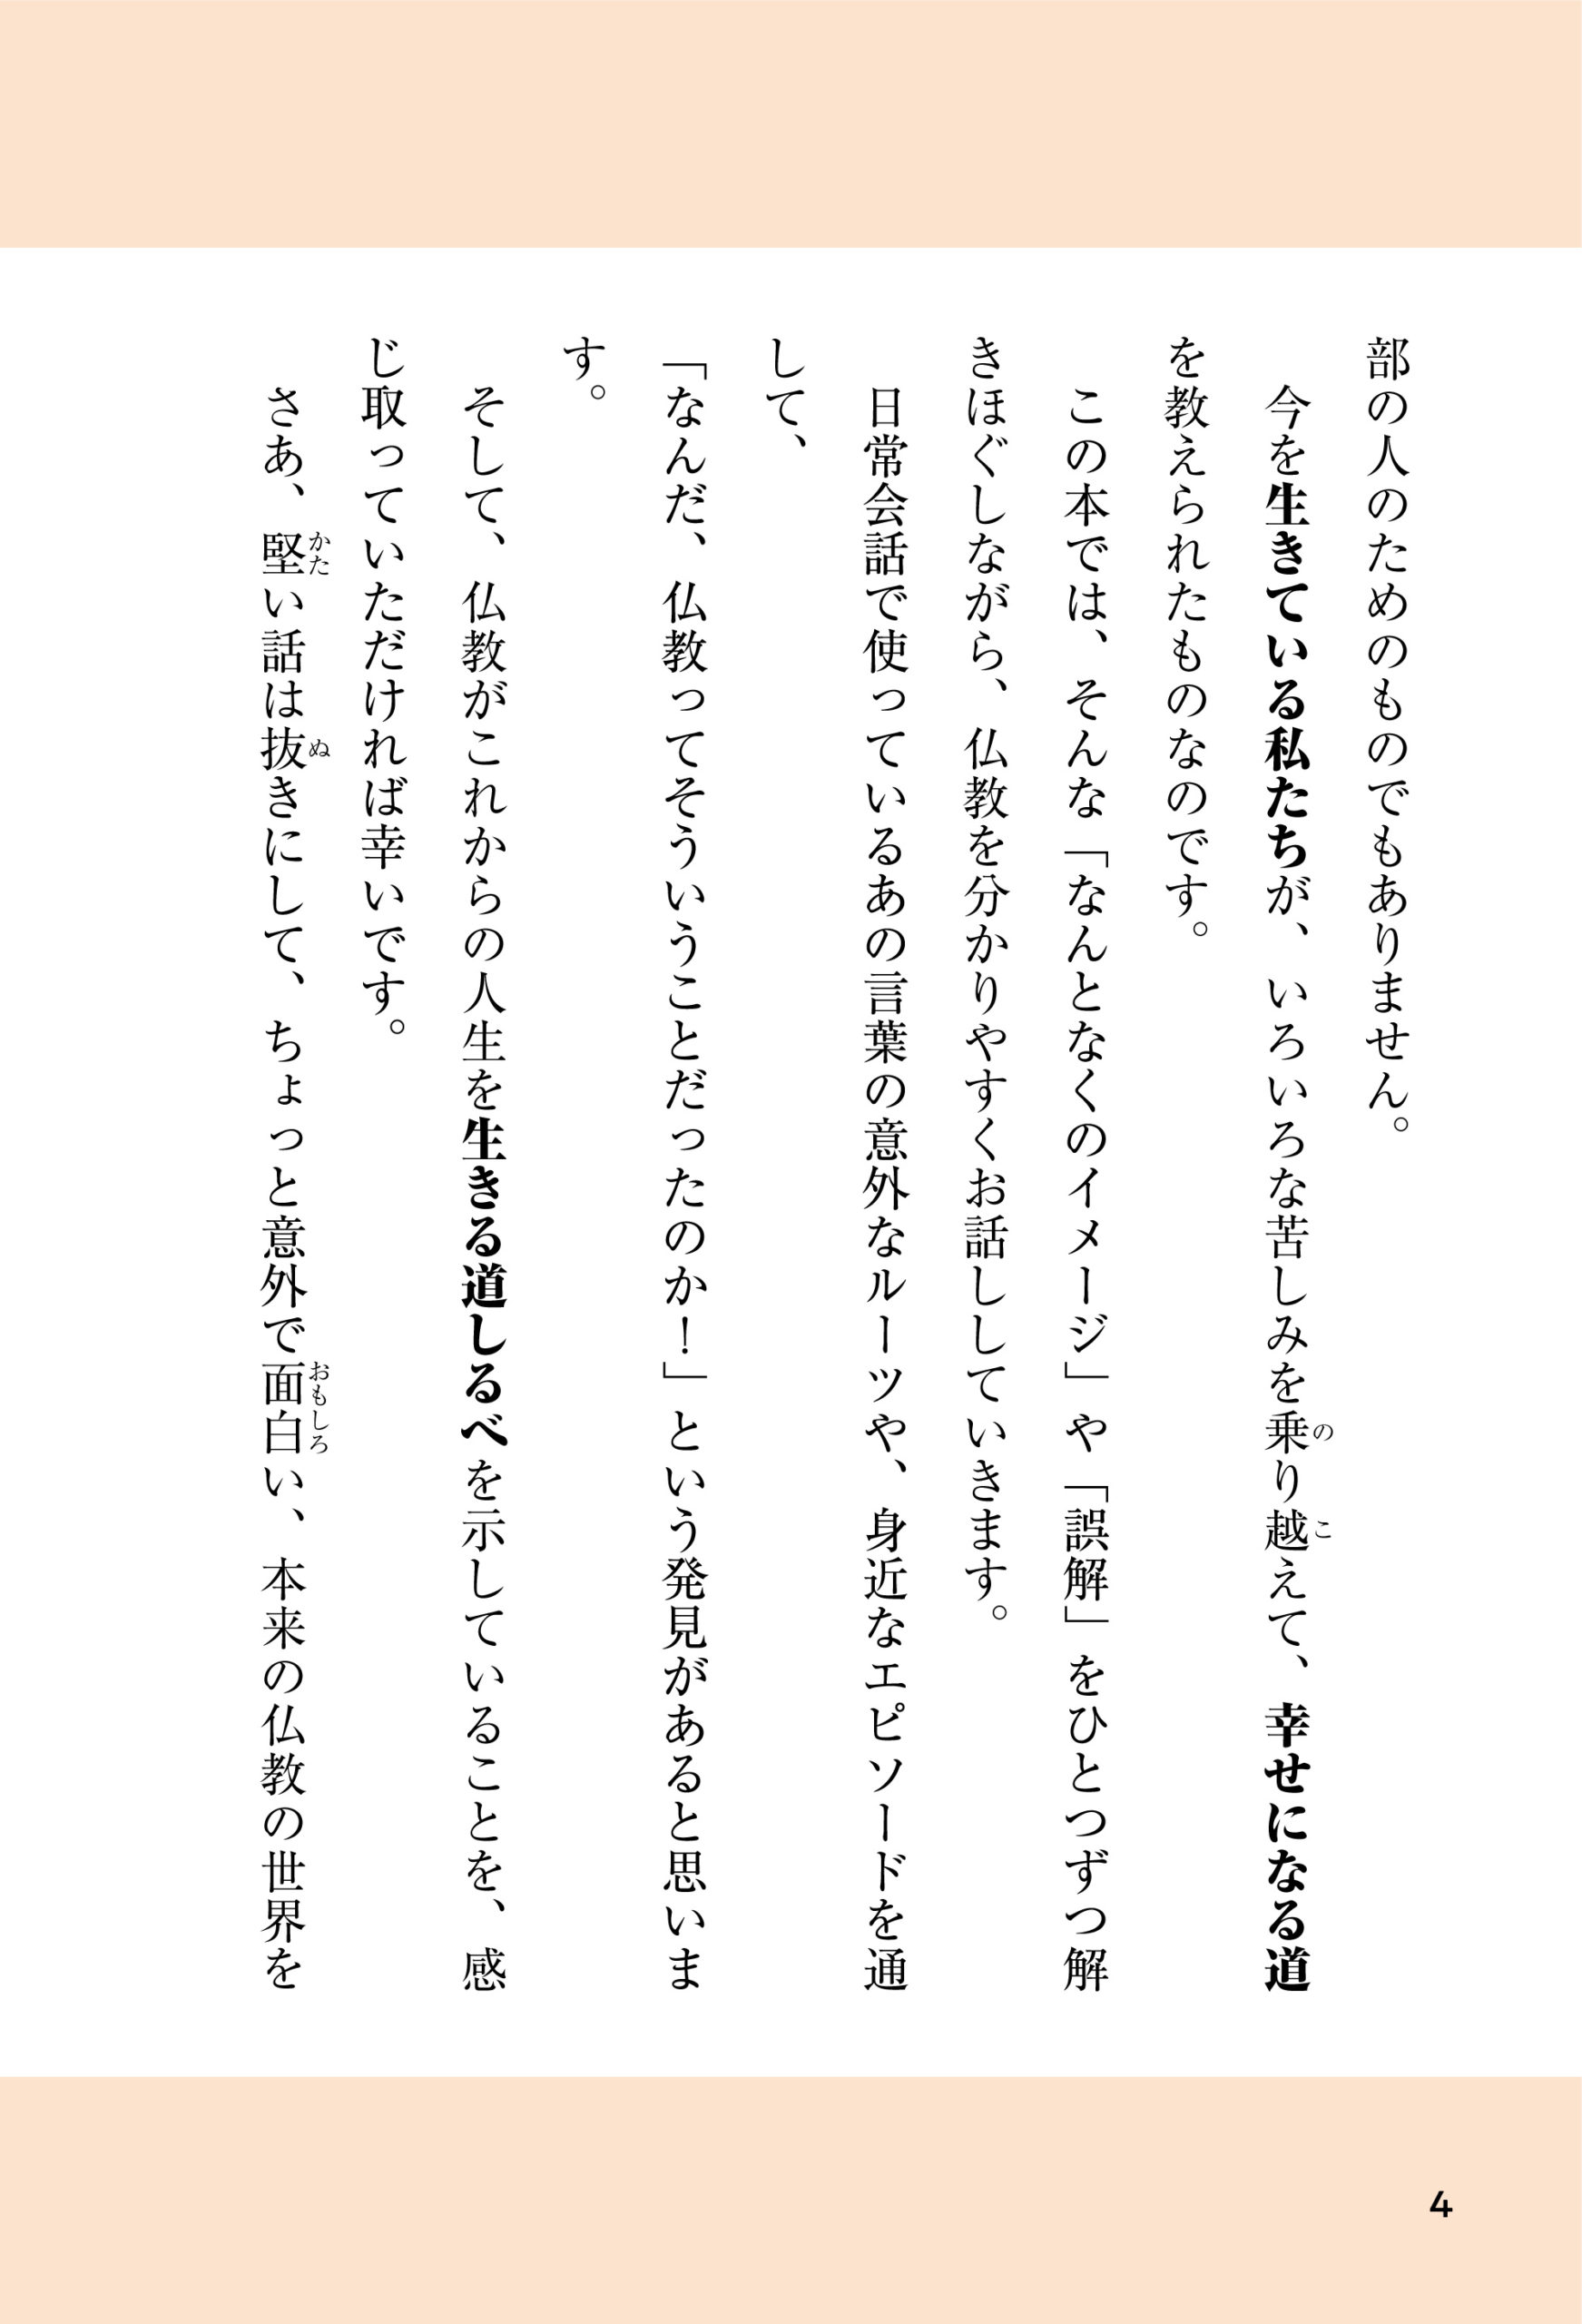 部の人のためのものでもありません。
今を生きている私たちが、いろいろな苦しみを乗り越えて、幸せになる道
を教えられたものなのです。
この本では、そんな「なんとなくのイメージ」や「誤解」をひとつずつ解
きほぐしながら、仏教を分かりやすくお話ししていきます。
日常会話で使っているあの言葉の意外なルーツや、身近なエピソードを通
して、
「なんだ、仏教ってそういうことだったのか！」という発見があると思いま
す。
そして、仏教がこれからの人生を生きる道しるべを示していることを、感
じ取っていただければ幸いです。
さあ、堅い話は抜きにして、ちょっと意外で面白い、本来の仏教の世界を
4